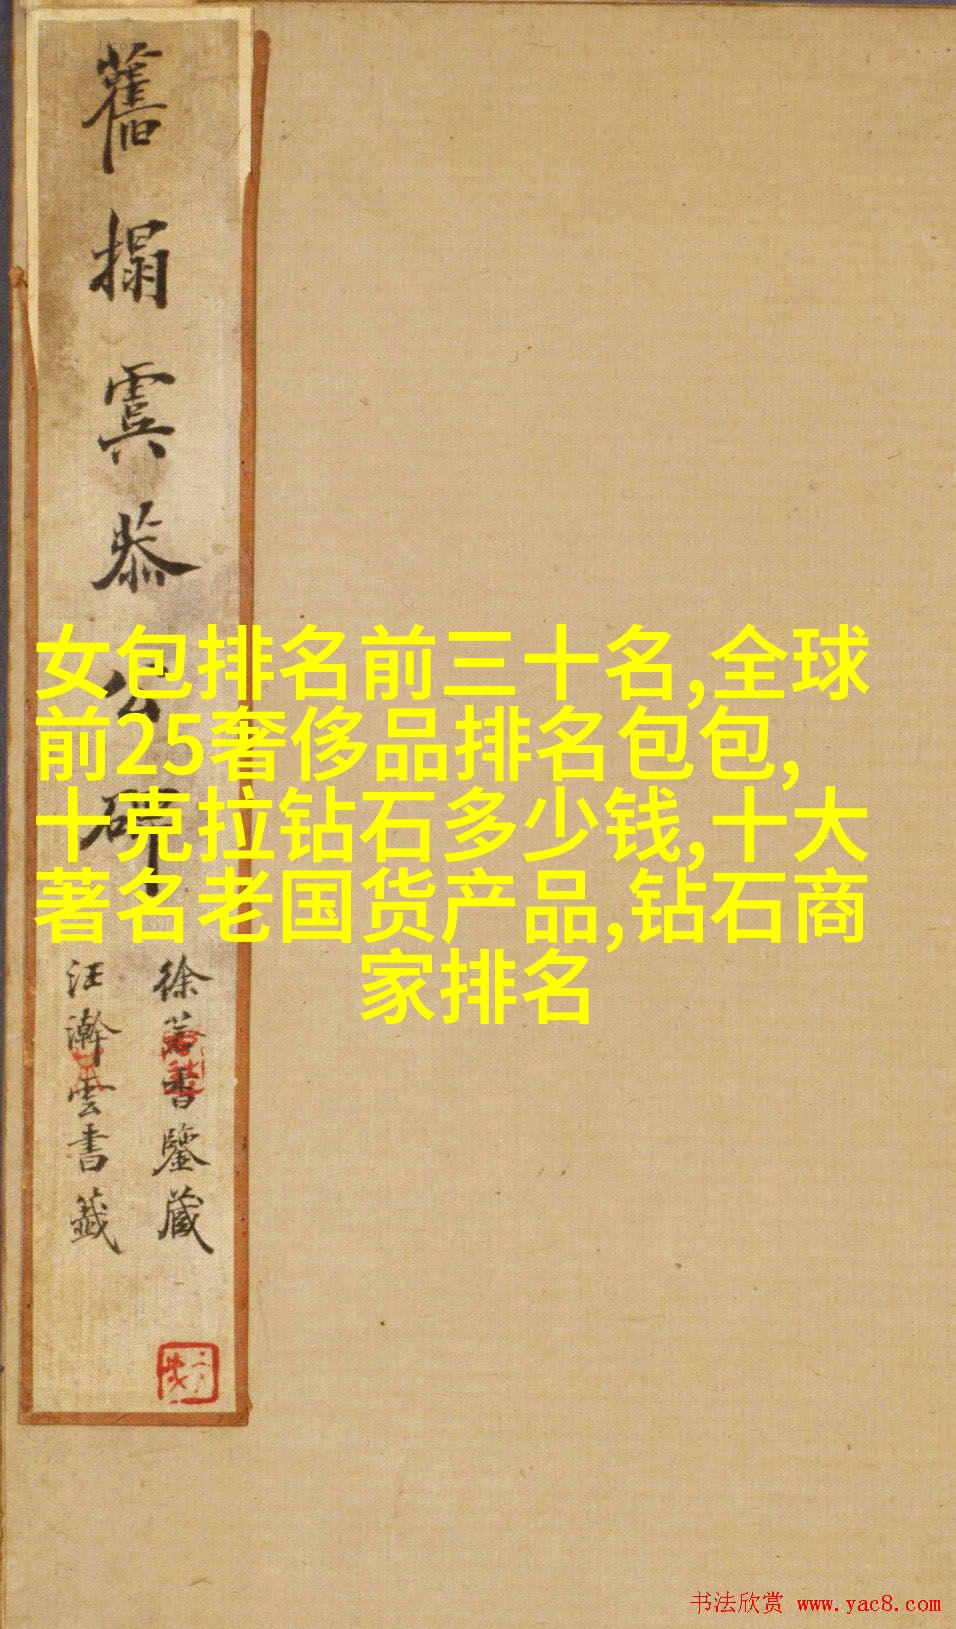 舊搨虞恭公碑
徐若書鑒藏
汪瀚雲書籤
女包排名前三十名,全球
前25奢侈品排名包包,
十克拉钻石多少钱,十大
著名老国货产品,钻石商
家排名
书法欣赏 www.yac8.com